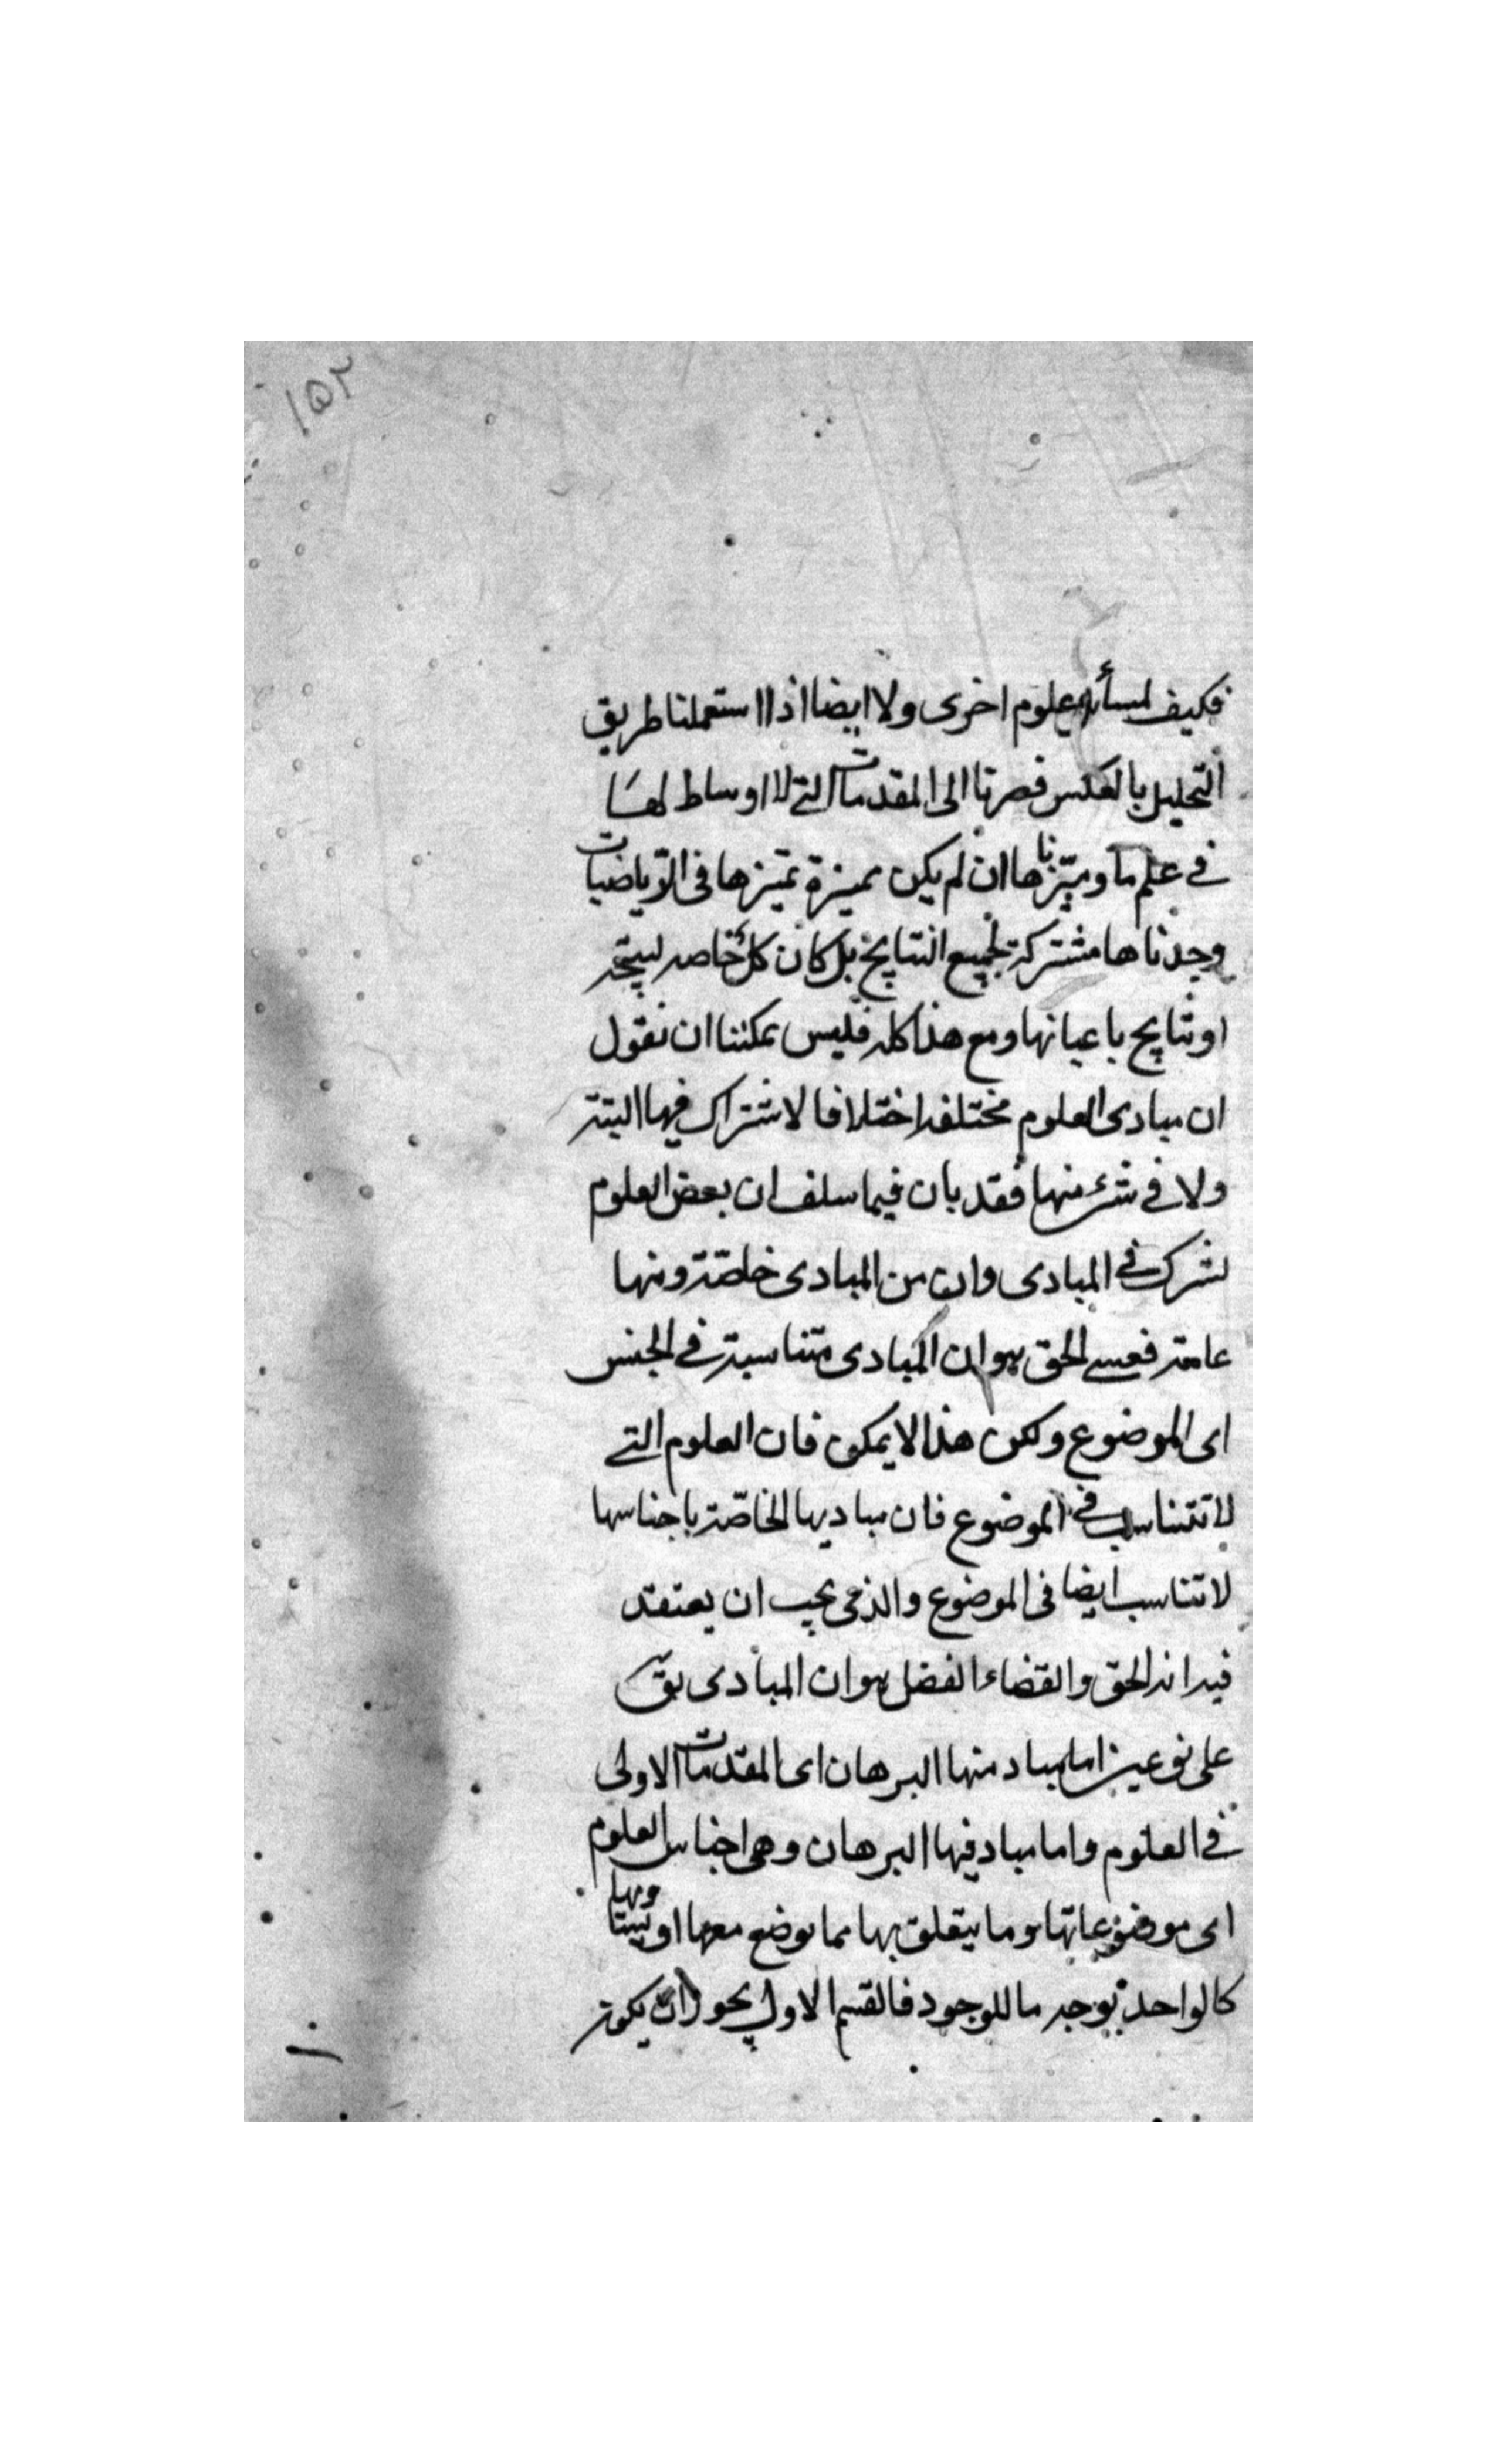 ١٥٢
فكيف لمسألة علوم اخرى ولا ايضا اذا استعملنا طريق
التحليل بالعكس فصرنا الى المقدمات التي لا اوساط لها
في علم ما وميزناها ان لم يكن مميزة تميزها في الرياضيات
وجدناها مشتركة لجميع النتايج بل كان كل خاصه لنتيجه
او نتايج باعيانها ومع هذا كله فليس يمكننا ان نقول
ان مبادى العلوم مختلفه اختلافا لا اشتراك فيها البتة
ولا في شئ منها فقد بان فيما سلف ان بعض العلوم
تشرك في المبادى وان من المبادى خاصّة ومنها
عامة فعسى الحق هو ان المبادى متناسبة في الجنس
اى الموضوع ولكن هذا لا يمكن فان العلوم التي
لا تتناسب في الموضوع فان مباديها الخاصّة باجناسها
لا تتناسب ايضا في الموضوع والذى يجب ان يعتقد
فيه انه الحق والقضاء الفضل هو ان المبادى يقّ
على نوعين اما مباد منها البرهان اى المقدمات الاولى
في العلوم واما مباد فيها البرهان وهى اجناس العلوم
اى موضوعاتها وما يتعلق بها مما يوضع معها او
كالواحد بوجه ما للوجود فالقسم الاول يجوز ان يكون